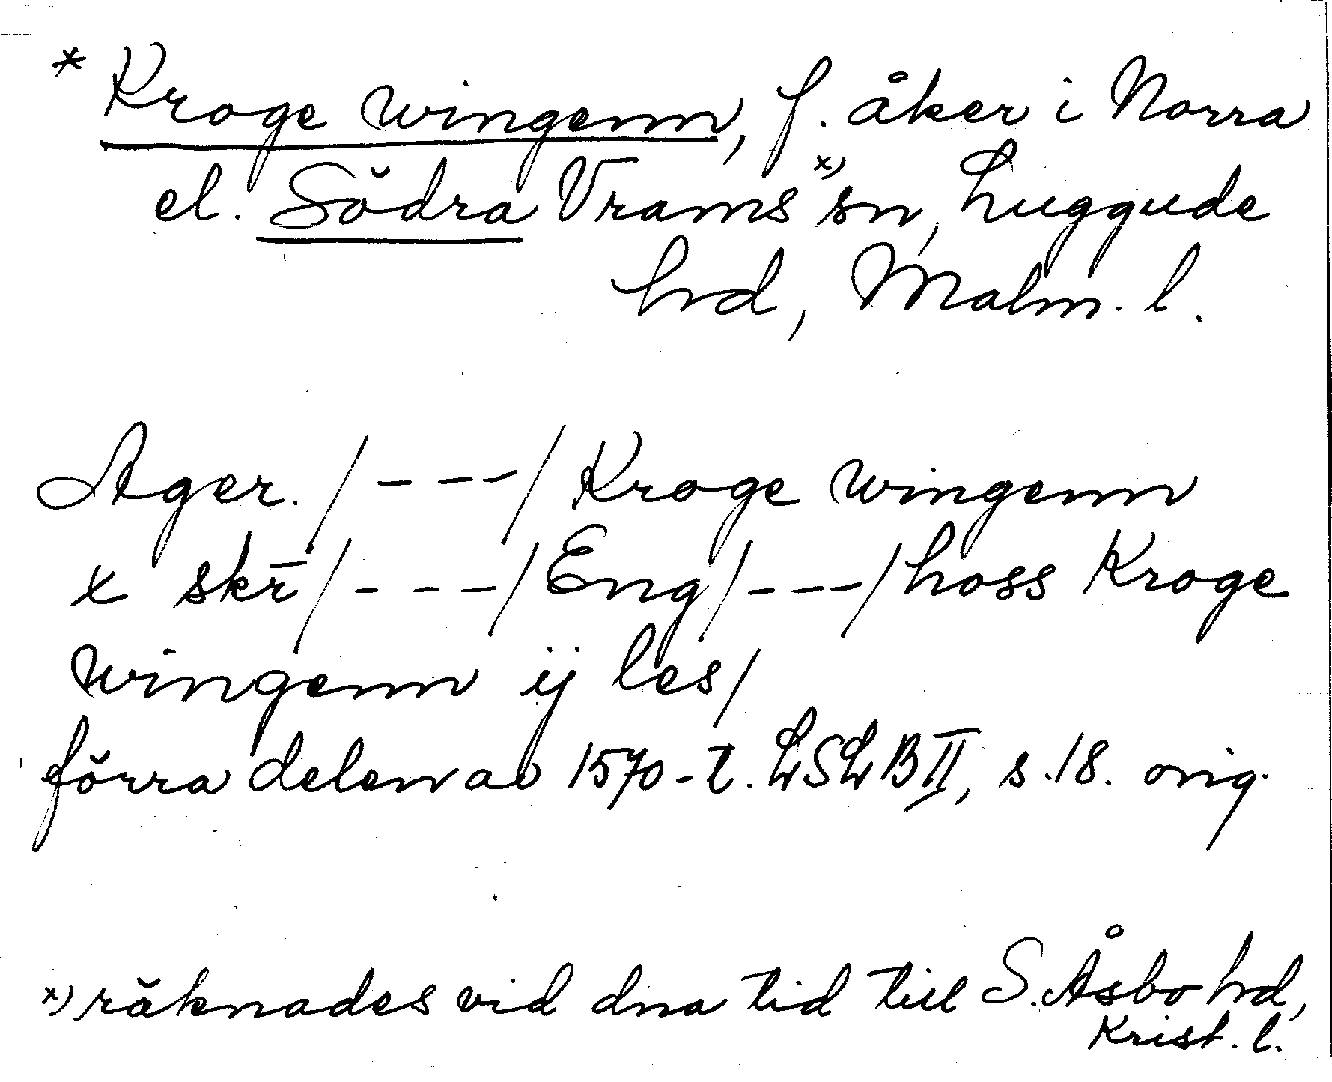 * Kroge wingenn, f. åker i Norra
el. Södra Vrams x) sn, Luggude
hd, Malm. l.
Ager. /---/ Kroge wingenn
x skr̄ /---/ Eng /---/ hoss Kroge
wingenn ij les /
förra delen av 1570-t. LSLB II, s. 18. orig.
x) räknades vid dna tid till S. Åsbo hd,
Krist. l.